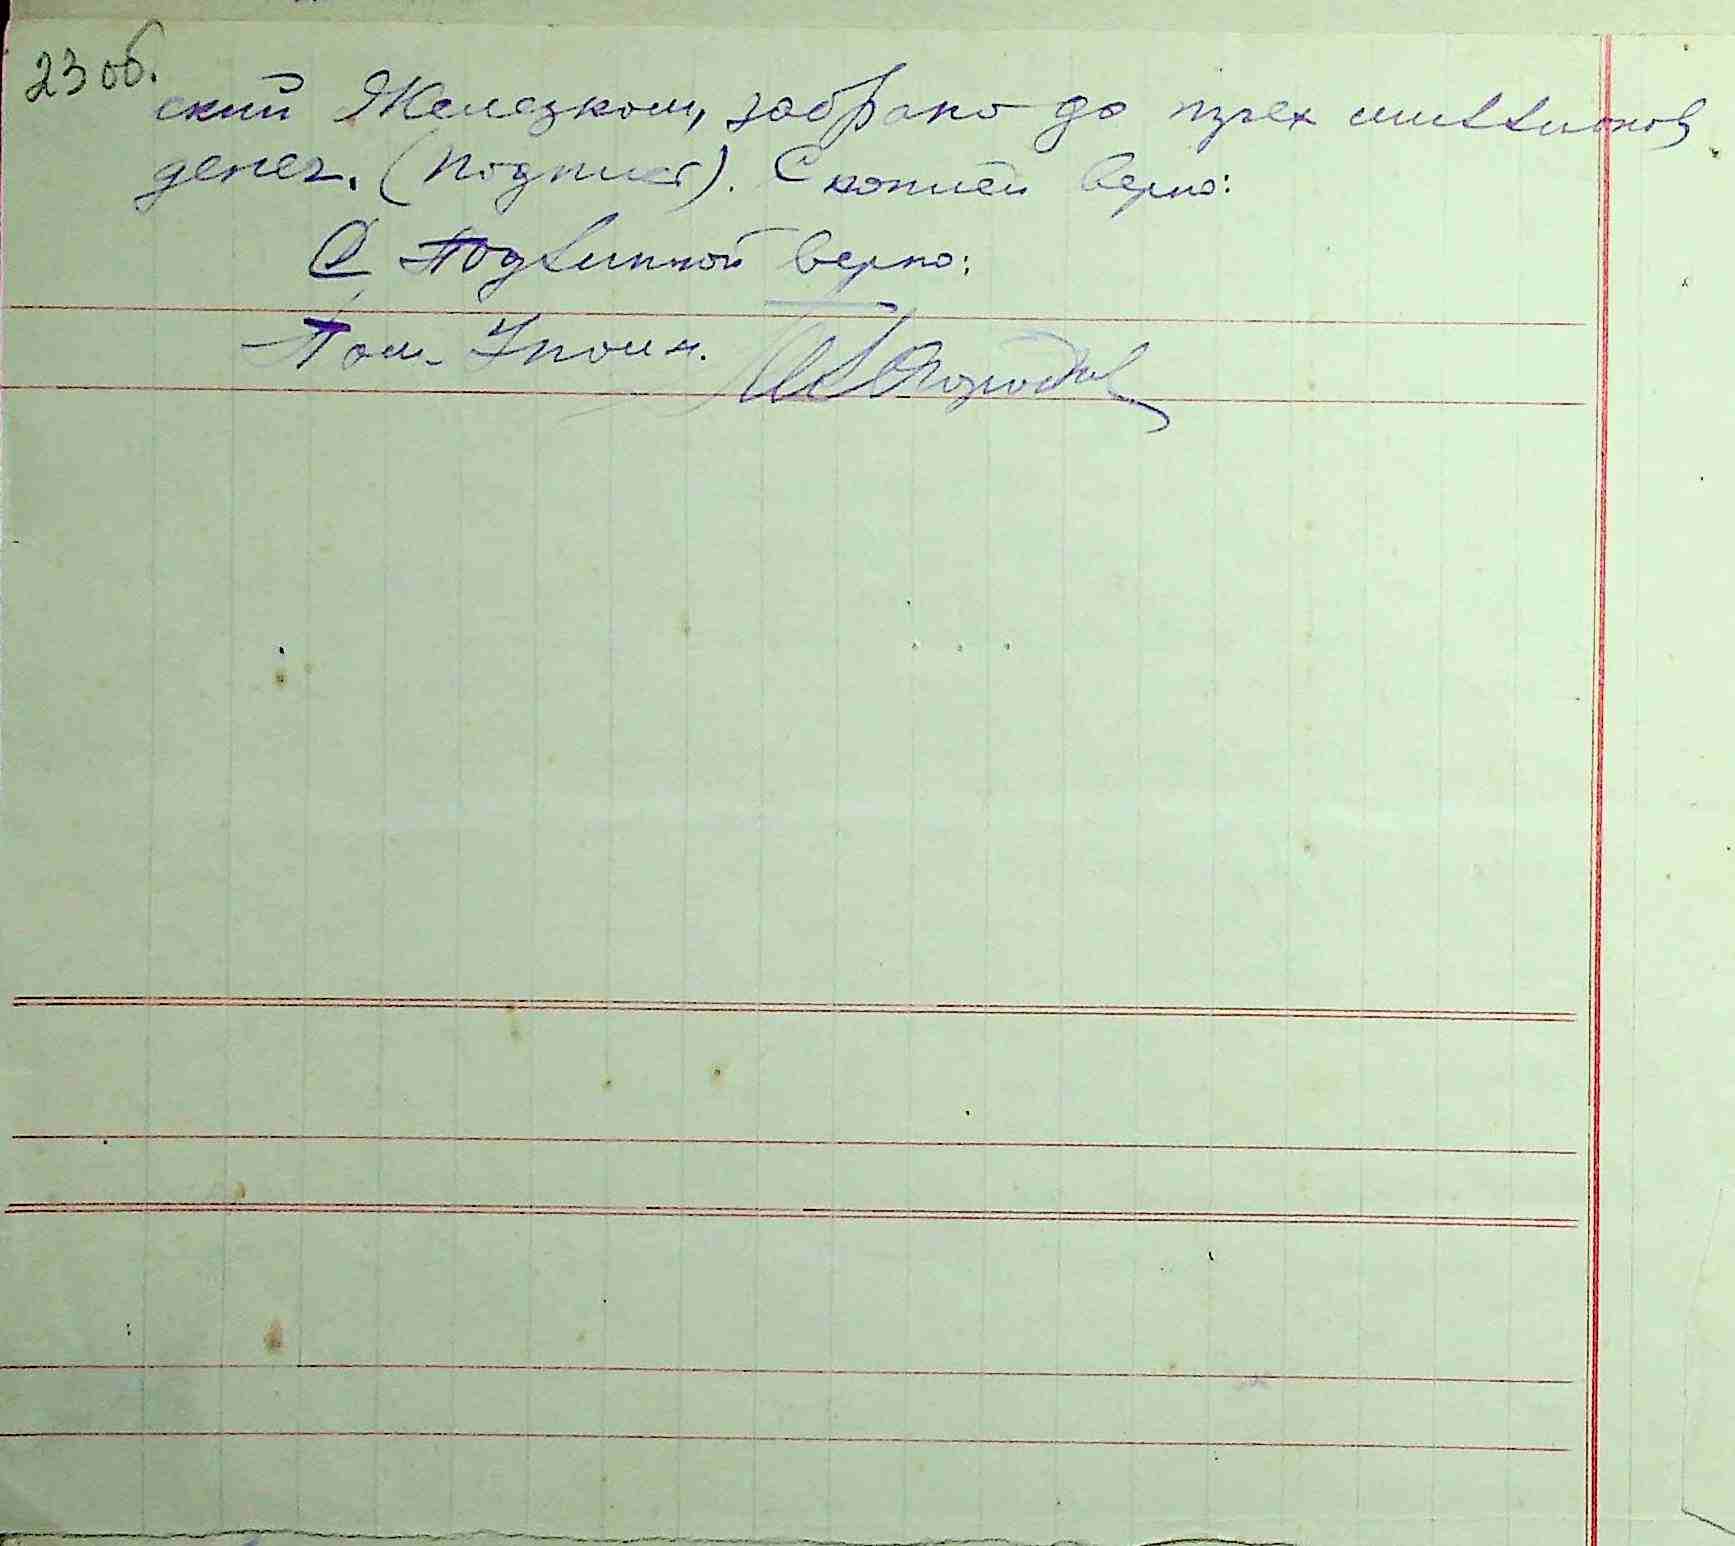 23 об.
ский Железком, забрано до трех миллионов
денег. (Подпись). С копией верно:
С Подлинной верно:
Пом. Упол.